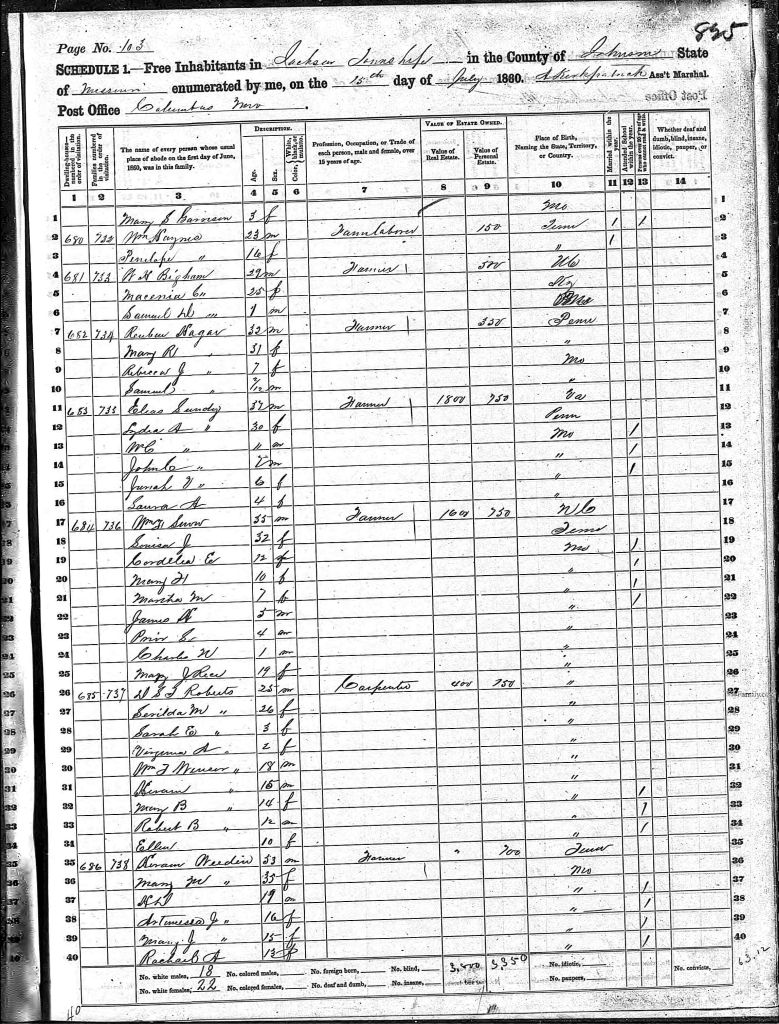 835
Page No. 103
SCHEDULE 1.—Free Inhabitants in Jackson Township in the County of Johnson State
of Missouri enumerated by me, on the 15th day of July 1860. Ass't Marshal.
Post Office Columbus Mo
DESCRIPTION. VALUE OF ESTATE OWNED.
Dwelling-houses—numbered in the order of visitation. Families numbered in the order of visitation. The name of every person whose usual place of abode on the first day of June, 1860, was in this family. Age. Sex. Color, White, black, or mulatto. Profession, Occupation, or Trade of each person, male and female, over 15 years of age. Value of Real Estate. Value of Personal Estate. Place of Birth, Naming the State, Territory, or Country. Married within the year. Attended School within the year. Whether deaf and dumb, blind, insane, idiotic, pauper, or convict.
1 2 3 4 5 6 7 8 9 10 11 12 13 14
1 Mary S Garrison 3 f Mo 1
2 680 732 Wm Haynes 23 m Farm laborer 150 Tenn 1 1 2
3 Penelope " 16 f " 1 3
4 681 733 W H Bigham 29 m Farmer 500 NC 4
5 Macenia C " 25 f Ky 5
6 Samuel D " 1 m Mo 6
7 682 734 Reuben Hagar 32 m Farmer 350 Penn 7
8 Mary R 31 f " 8
9 Rebecca J " 7 f Mo 9
10 Samuel " m " 10
11 683 735 Elias Sundy 37 m Farmer 1800 750 Va 11
12 Lydia A " 30 f Penn 12
13 " m Mo 1 13
14 John C " m " 1 14
15 V " 6 f " 1 15
16 Laura A 4 f " 16
17 684 736 Wm 35 m Farmer 1600 750 NC 17
18 Louisa J 32 f Tenn 18
19 Cordelia E 12 f Mo 1 19
20 Mary H 10 f " 1 20
21 Martha M 7 f " 1 21
22 James 5 m " 1 22
23 E 4 m " 23
24 Charles W 1 m " 24
25 Mary J Rice 19 f " 25
26 685 737 Roberts 25 m Carpenter 400 750 " 26
27 Serilda M " 26 f " 27
28 Sarah E " 3 f " 28
29 Virginia A " 2 f " 29
30 Wm F " 18 m " 30
31 Hiram " 15 m " 31
32 Mary B " 14 f " 1 32
33 Robert B " 12 m " 1 33
34 Ellen 10 f " 1 34
35 686 738 Hiram Weedin 53 m Farmer " 700 Tenn 35
36 Mary M " 35 f Mo 36
37 19 m " 37
38 Artemesia J " 16 f " 1 38
39 Mary J " 15 f " 1 39
40 Rachael A 13 f " 1 40
No. white males, 18 No. colored males, No. foreign born, No. blind, 3,800 3,350 No. idiotic, No. convicts,
No. white females, 22 No. colored females, No. deaf and dumb, No. insane, No. paupers,
40
63.12